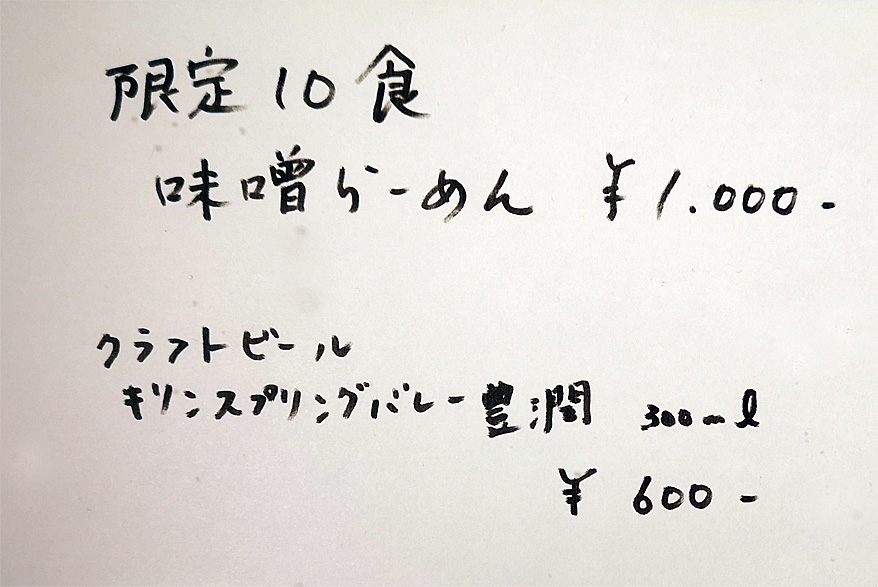 限定10食
味噌らーめん ¥1.000-
クラフトビール
キリンスプリングバレー豊潤 300ml
¥ 600-